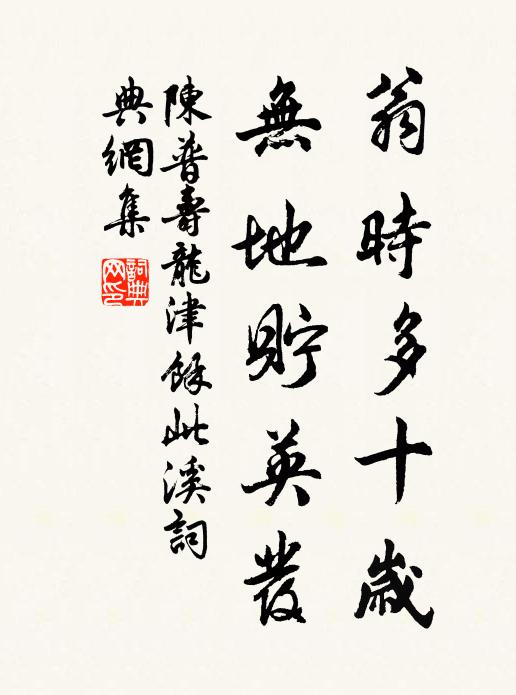 翁時多十歲
無地貯英發
陳普壽龍津餘此溪詞
典網集
詞典网印